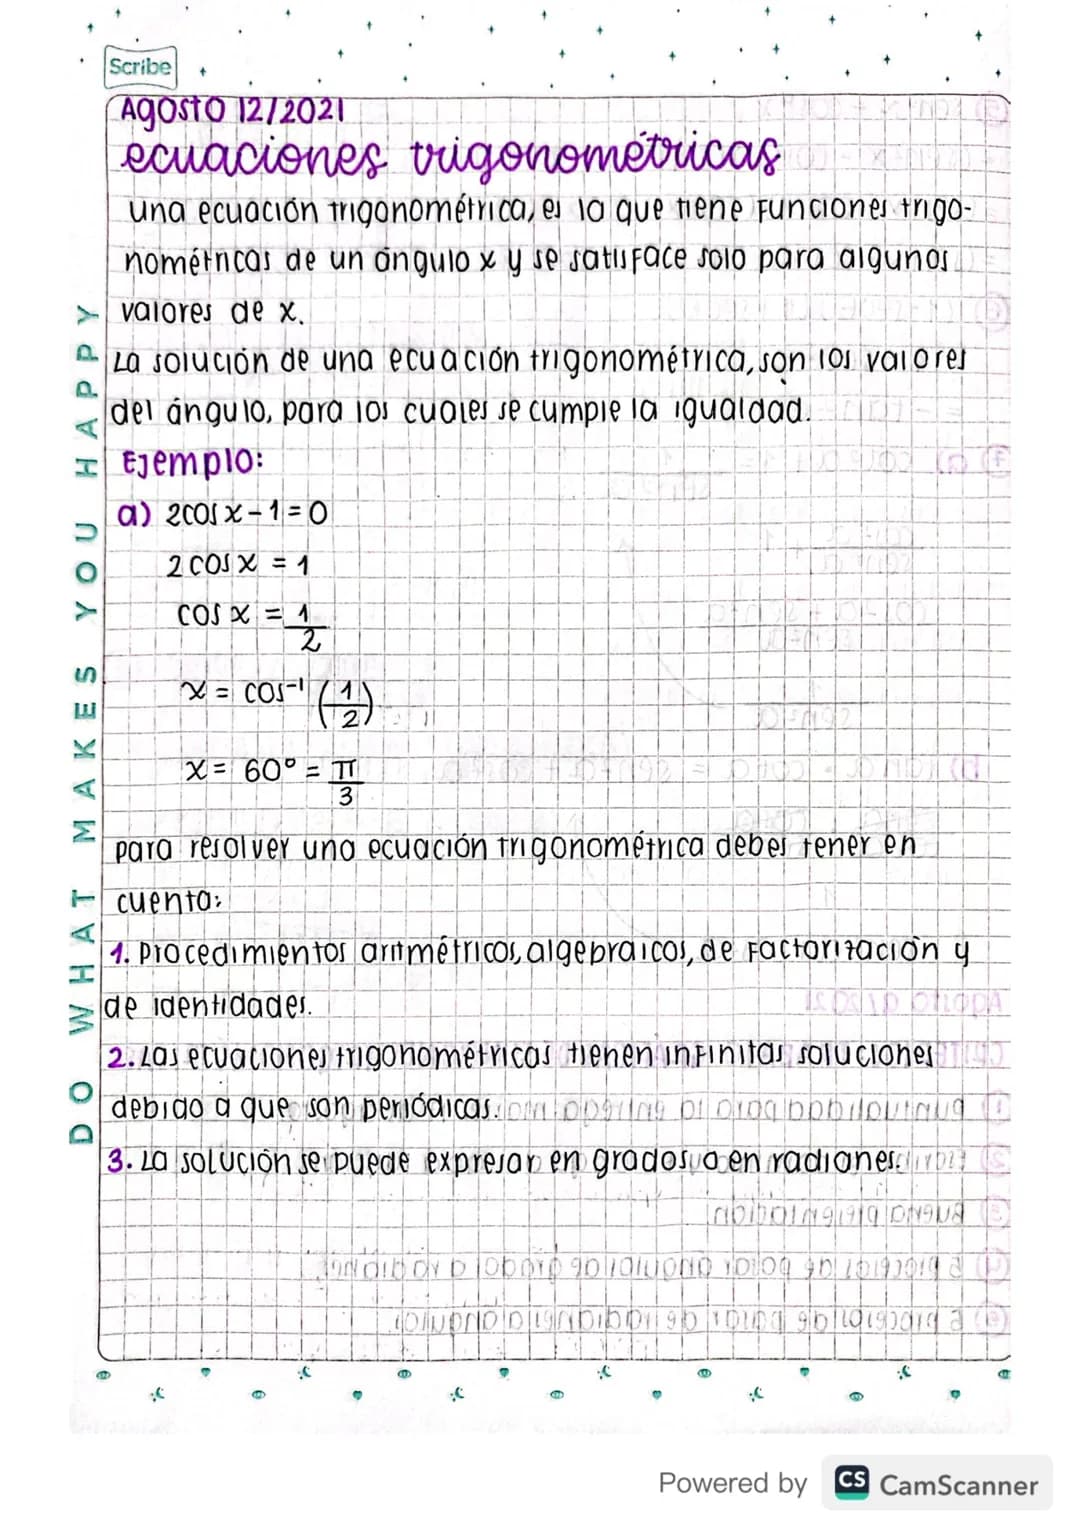 Scribe
Agosto 12/2021
ecuaciones trigonométricas
una ecuación trigonométrica, es lo que tiene funciones trigo-
nométricas de un ángulo x y se satisface solo para algunos
valores de x.
La solución de una ecuación trigonométrica, son los valores
del ángulo, para los cuales se cumple la igualdad.
Ejemplo:
a) 2cos x - 1 = 0
2 cos x = 1
cos x = 1/2
x = cos⁻¹ (1/2)
x = 60° = π/3
para resolver una ecuación trigonométrica debes tener en
cuenta:
1. Procedimientos aritmétricos, algebraicos, de factorización y
de identidades.
2. Las ecuaciones trigonométricas tienen infinitas soluciones
debido a que son periódicas.
3. La solución se puede expresar en grados o en radianes.
DO WHAT MAKES YOU HAPPY
Powered by CS CamScanner